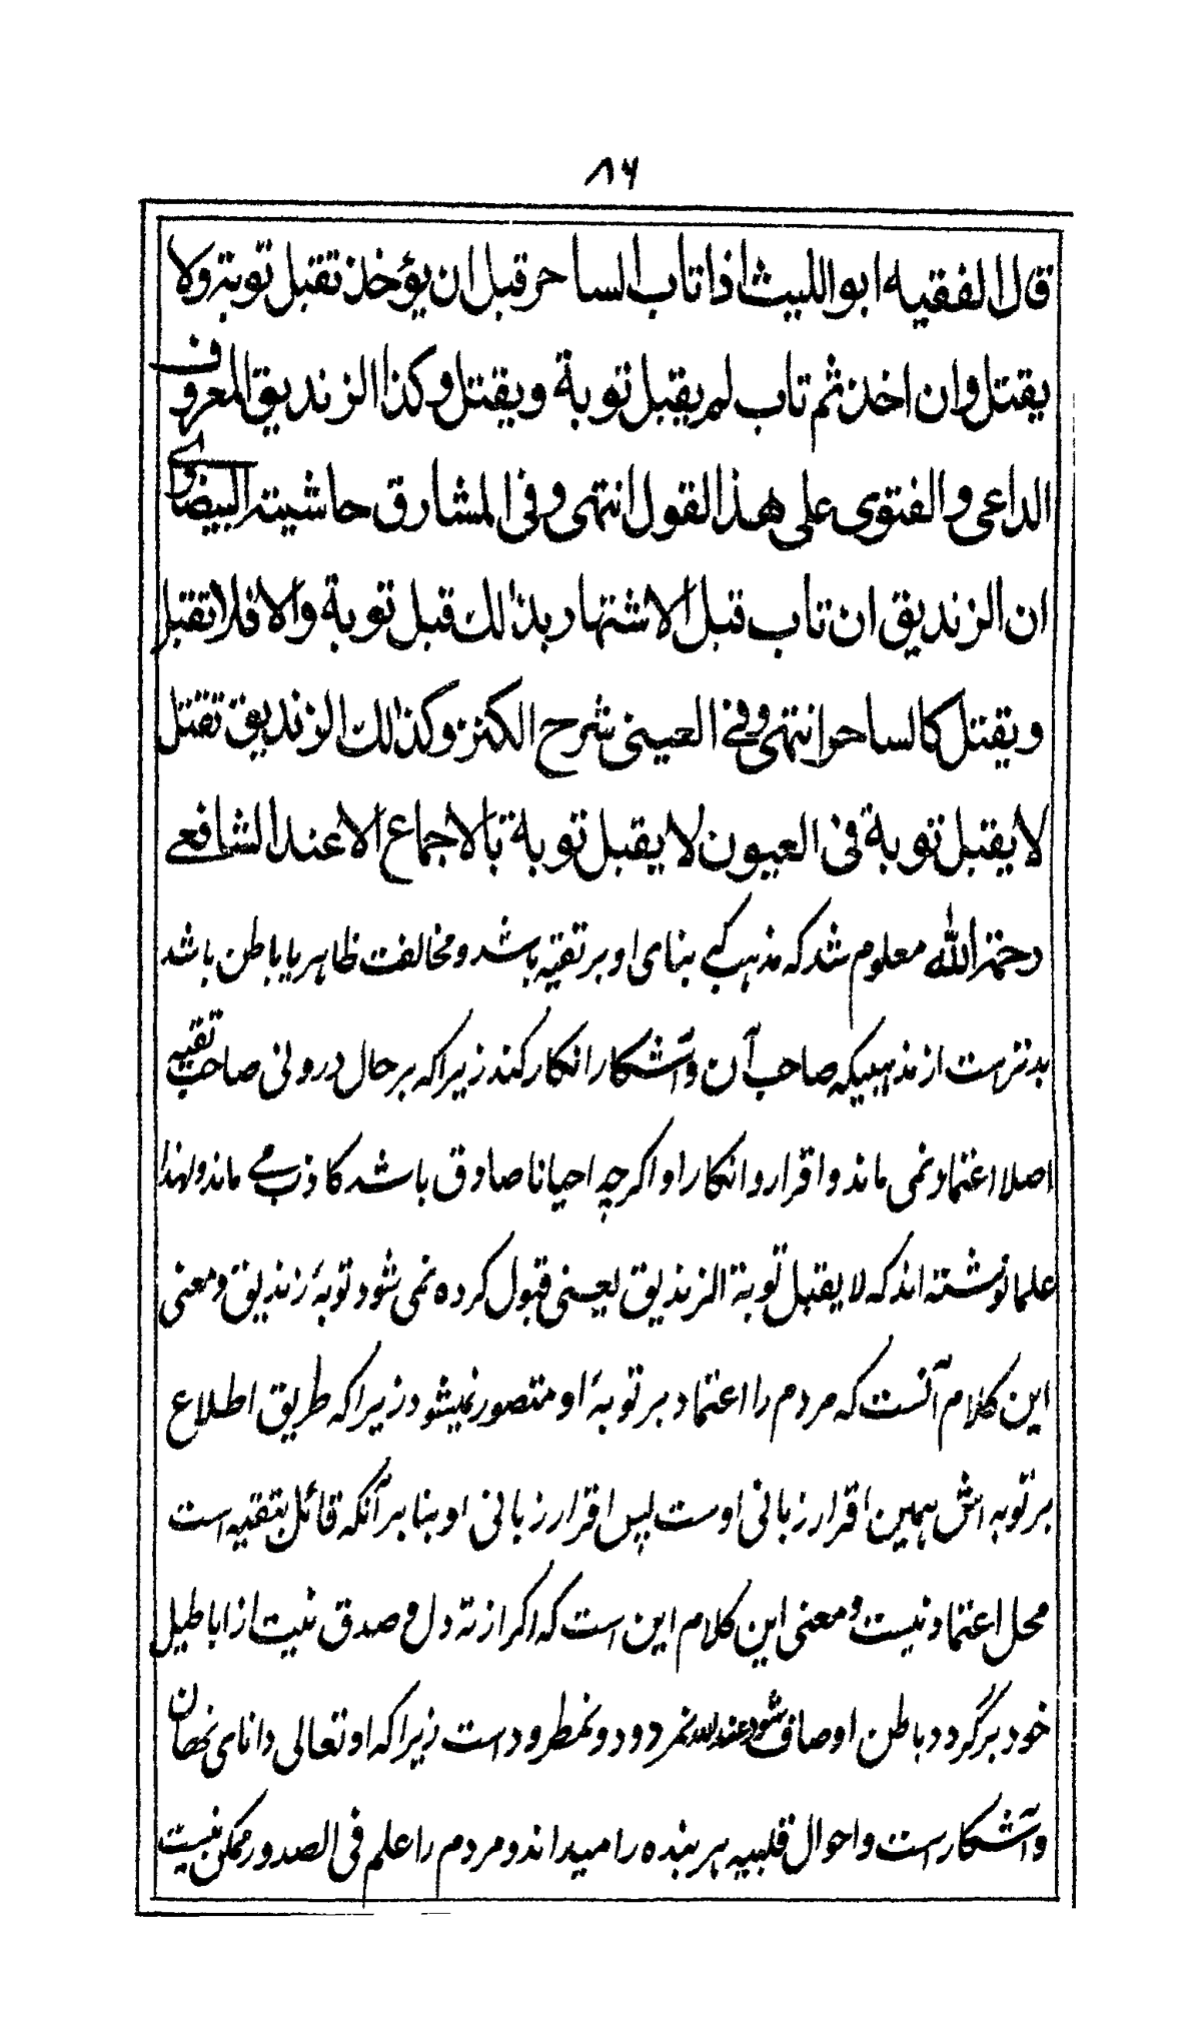 ۸۶
قال الفقیه ابو اللیث اذا تاب الساحر قبل ان یؤخذ تقبل توبته ولا
یقتل وان اخذ ثم تاب لم یقبل توبة ویقتل وکذا الزندیق المعروف
الداعی والفتوی علی هذا القول انتهی وفی المشارق حاشیة البیضاوی
ان الزندیق ان تاب قبل الاشتهار بذلك قبل توبة والا فلا تقبل
ویقتل کالساحر انتهی وفی العینی شرح الکنز وکذلك الزندیق تقتل
لا یقبل توبة فی العیون لا یقبل توبة بالاجماع الا عند الشافعے
رحمة الله معلوم شد که مذہب کے بنای او بر تقیہ باشد و مخالفت ظاہر با باطن باشد
بدترست از مذہبیکہ صاحب آن و آشکارا انکار کند زیرا کہ بر حال درونی صاحب تقیہ
اصلا اعتماد نمی ماند و اقرار و انکار او اگرچہ احیانا صادق باشد کاذب مے ماند و لہذا
علما نوشتہ اند کہ لا یقبل توبة الزندیق یعنی قبول کردہ نمی شود توبۂ زندیق و معنی
این کلام آنست کہ مردم را اعتماد بر توبۂ او متصور نمیشود زیرا کہ طریق اطلاع
بر توبہ اش ہمین اقرار زبانی اوست پس اقرار زبانی او بنا بر آنکہ قائل بتقیہ است
محل اعتماد نیست و معنی این کلام این است کہ اگر از تہ دل و صدق نیت از اباطیل
خود برگردد باطن او صاف شود عند اللہ نمردود و نمطرودست زیرا کہ او تعالی دانای نهان
و آشکارست و احوال قلبیہ ہر بندہ را میداند و مردم را علم فی الصدور ممکن نیست